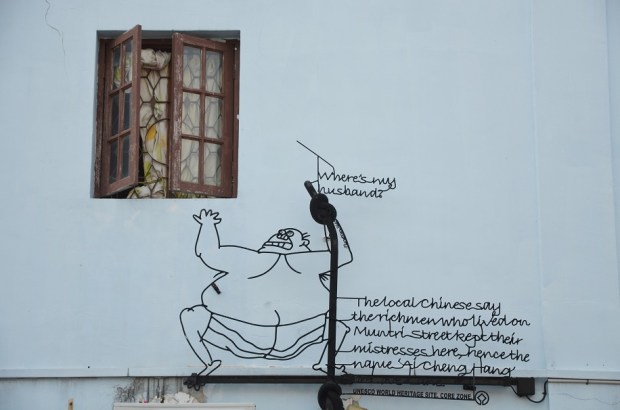 Where's my
husband?
The local Chinese say
the richmen who lived on
Muntri Street kept their
mistresses here, hence the
name 'Ai Cheng Hang'
UNESCO WORLD HERITAGE SITE, CORE ZONE